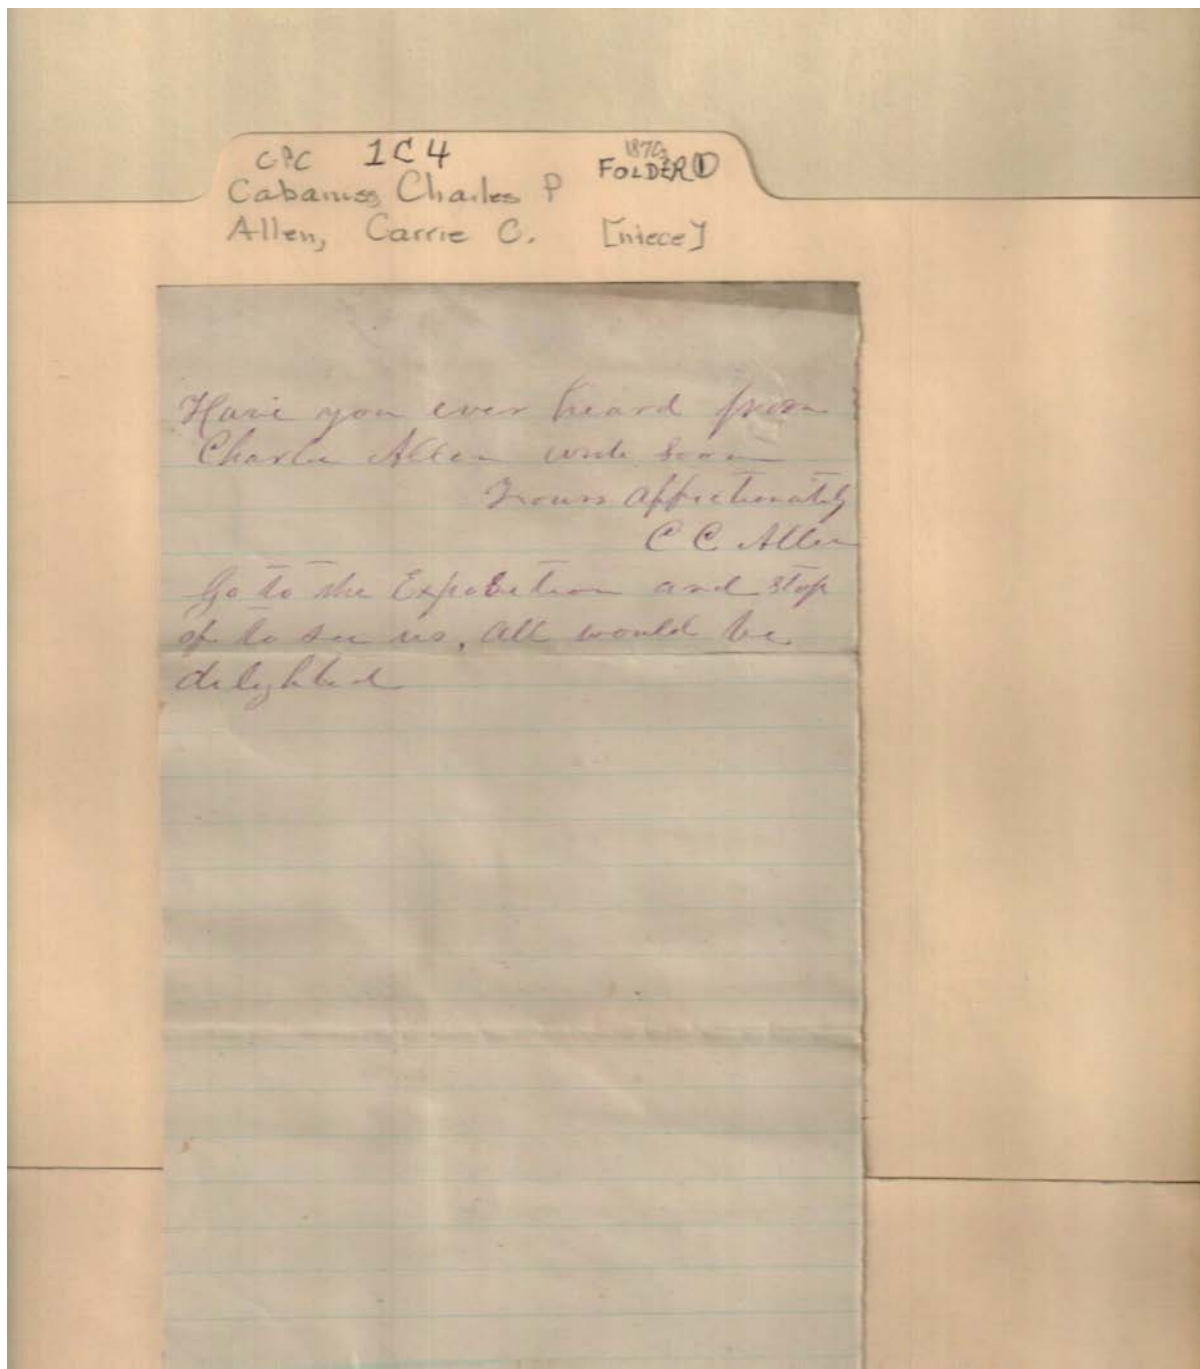 CPC 1C4 1876
FOLDER ①
Cabaniss, Charles P
Allen, Carrie C. [niece]
Have you ever heard from
Charlie Allen write soon
Yours affectionately
C C Allen
Go to the Exposition and stop
of to see us, all would be
delighted